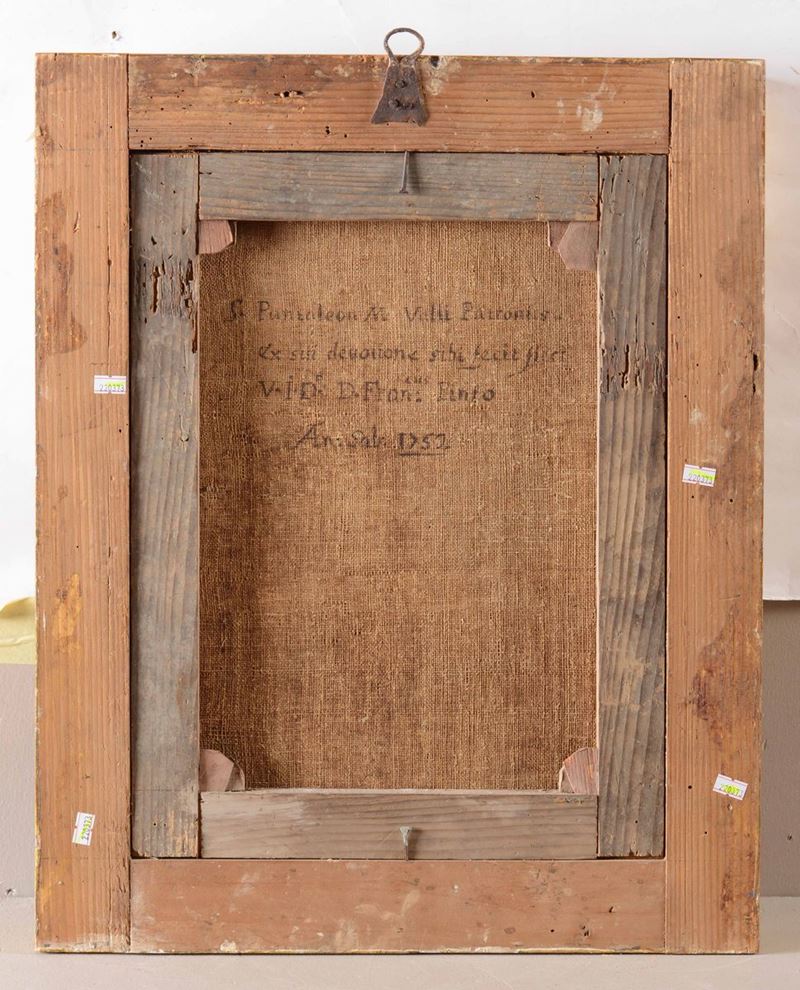 S. Pantaleon M. Valli Patronus.
Ex sui devotione sibi fecit
V. I. D.r D. Fran.cus Pinto
An. Sal. 1752
220373
220373
220373
220373